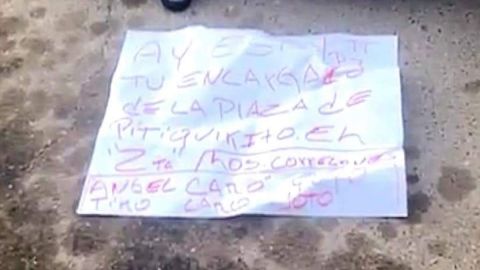 AY EST
TU ENCARGADO
DE LA PLAZA DE
PITIQUIKITO. EL
"Z
ANGEL CARO
TINO CARO JOTO